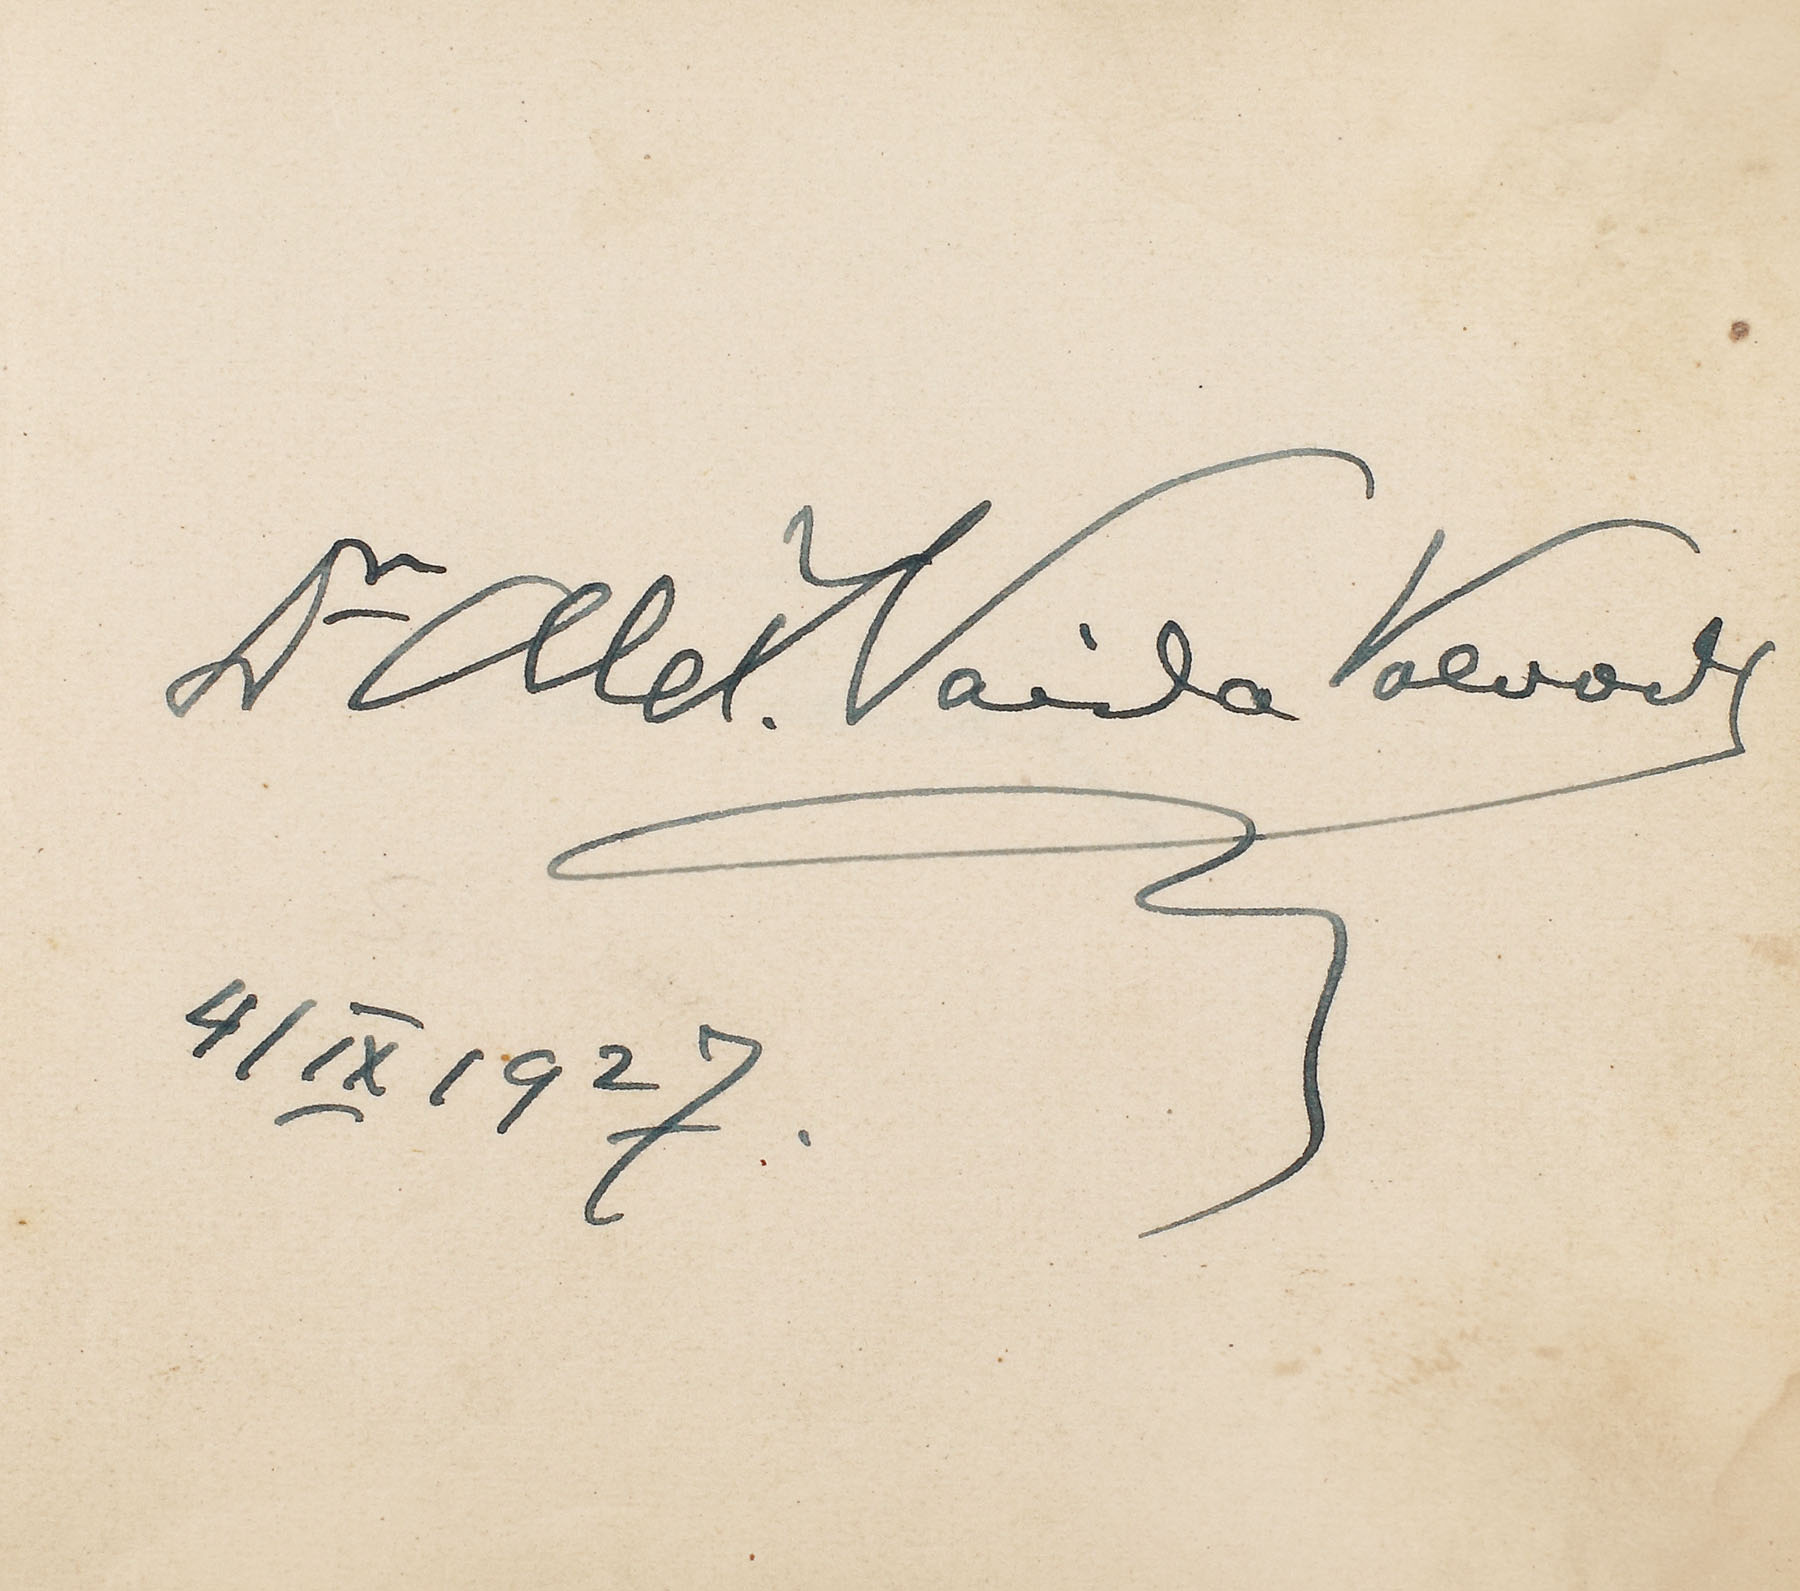 Dr Alex. Vaida Voevod
4/IX 1927.